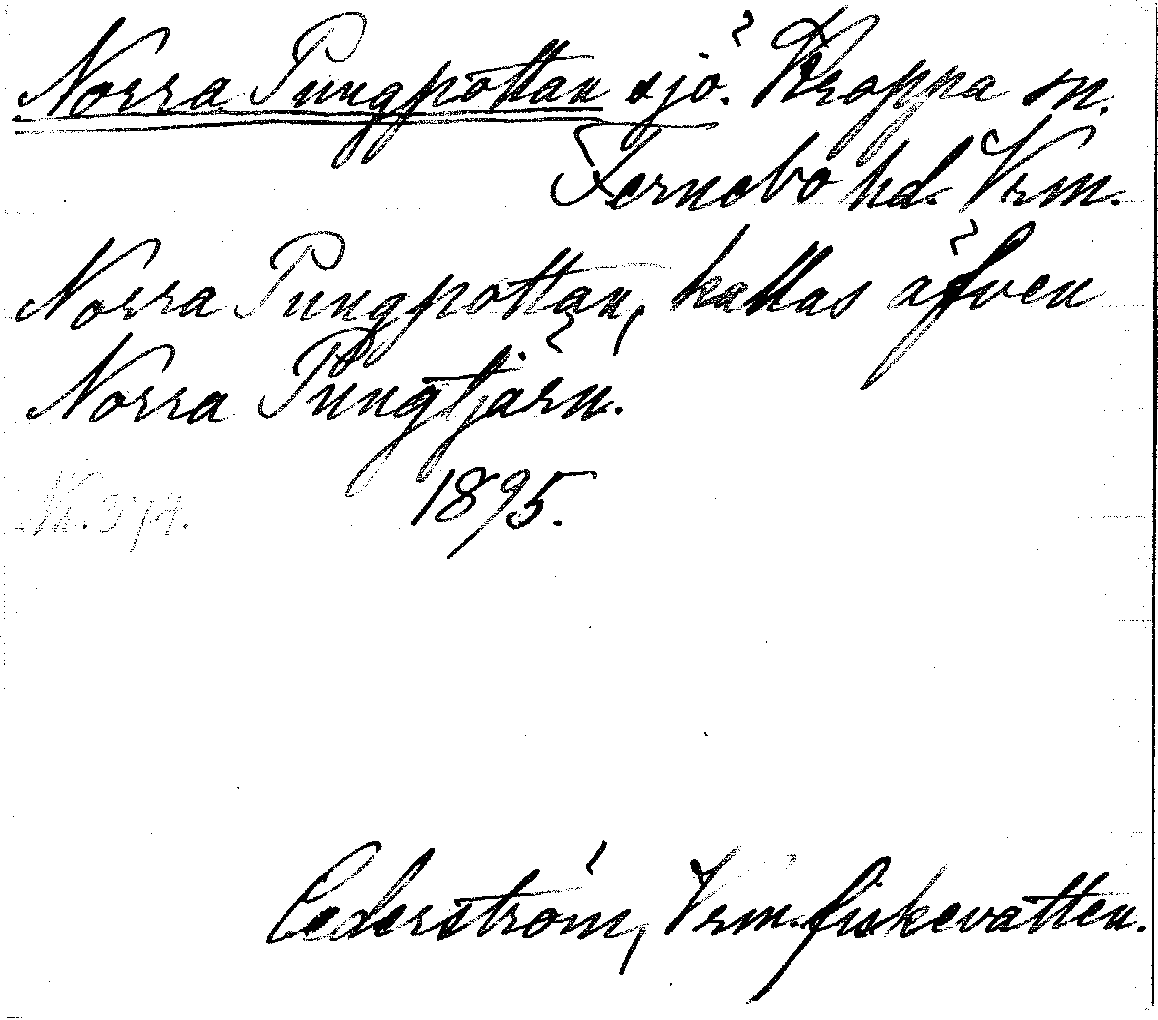 Norra Pungpottan sjö. Kroppa sn.
Fernebo hd. Vrm.
Norra Pungpottan, kallas äfven
Norra Pungtjärn.
1895.
Cederström, Vrm. fiskevatten.